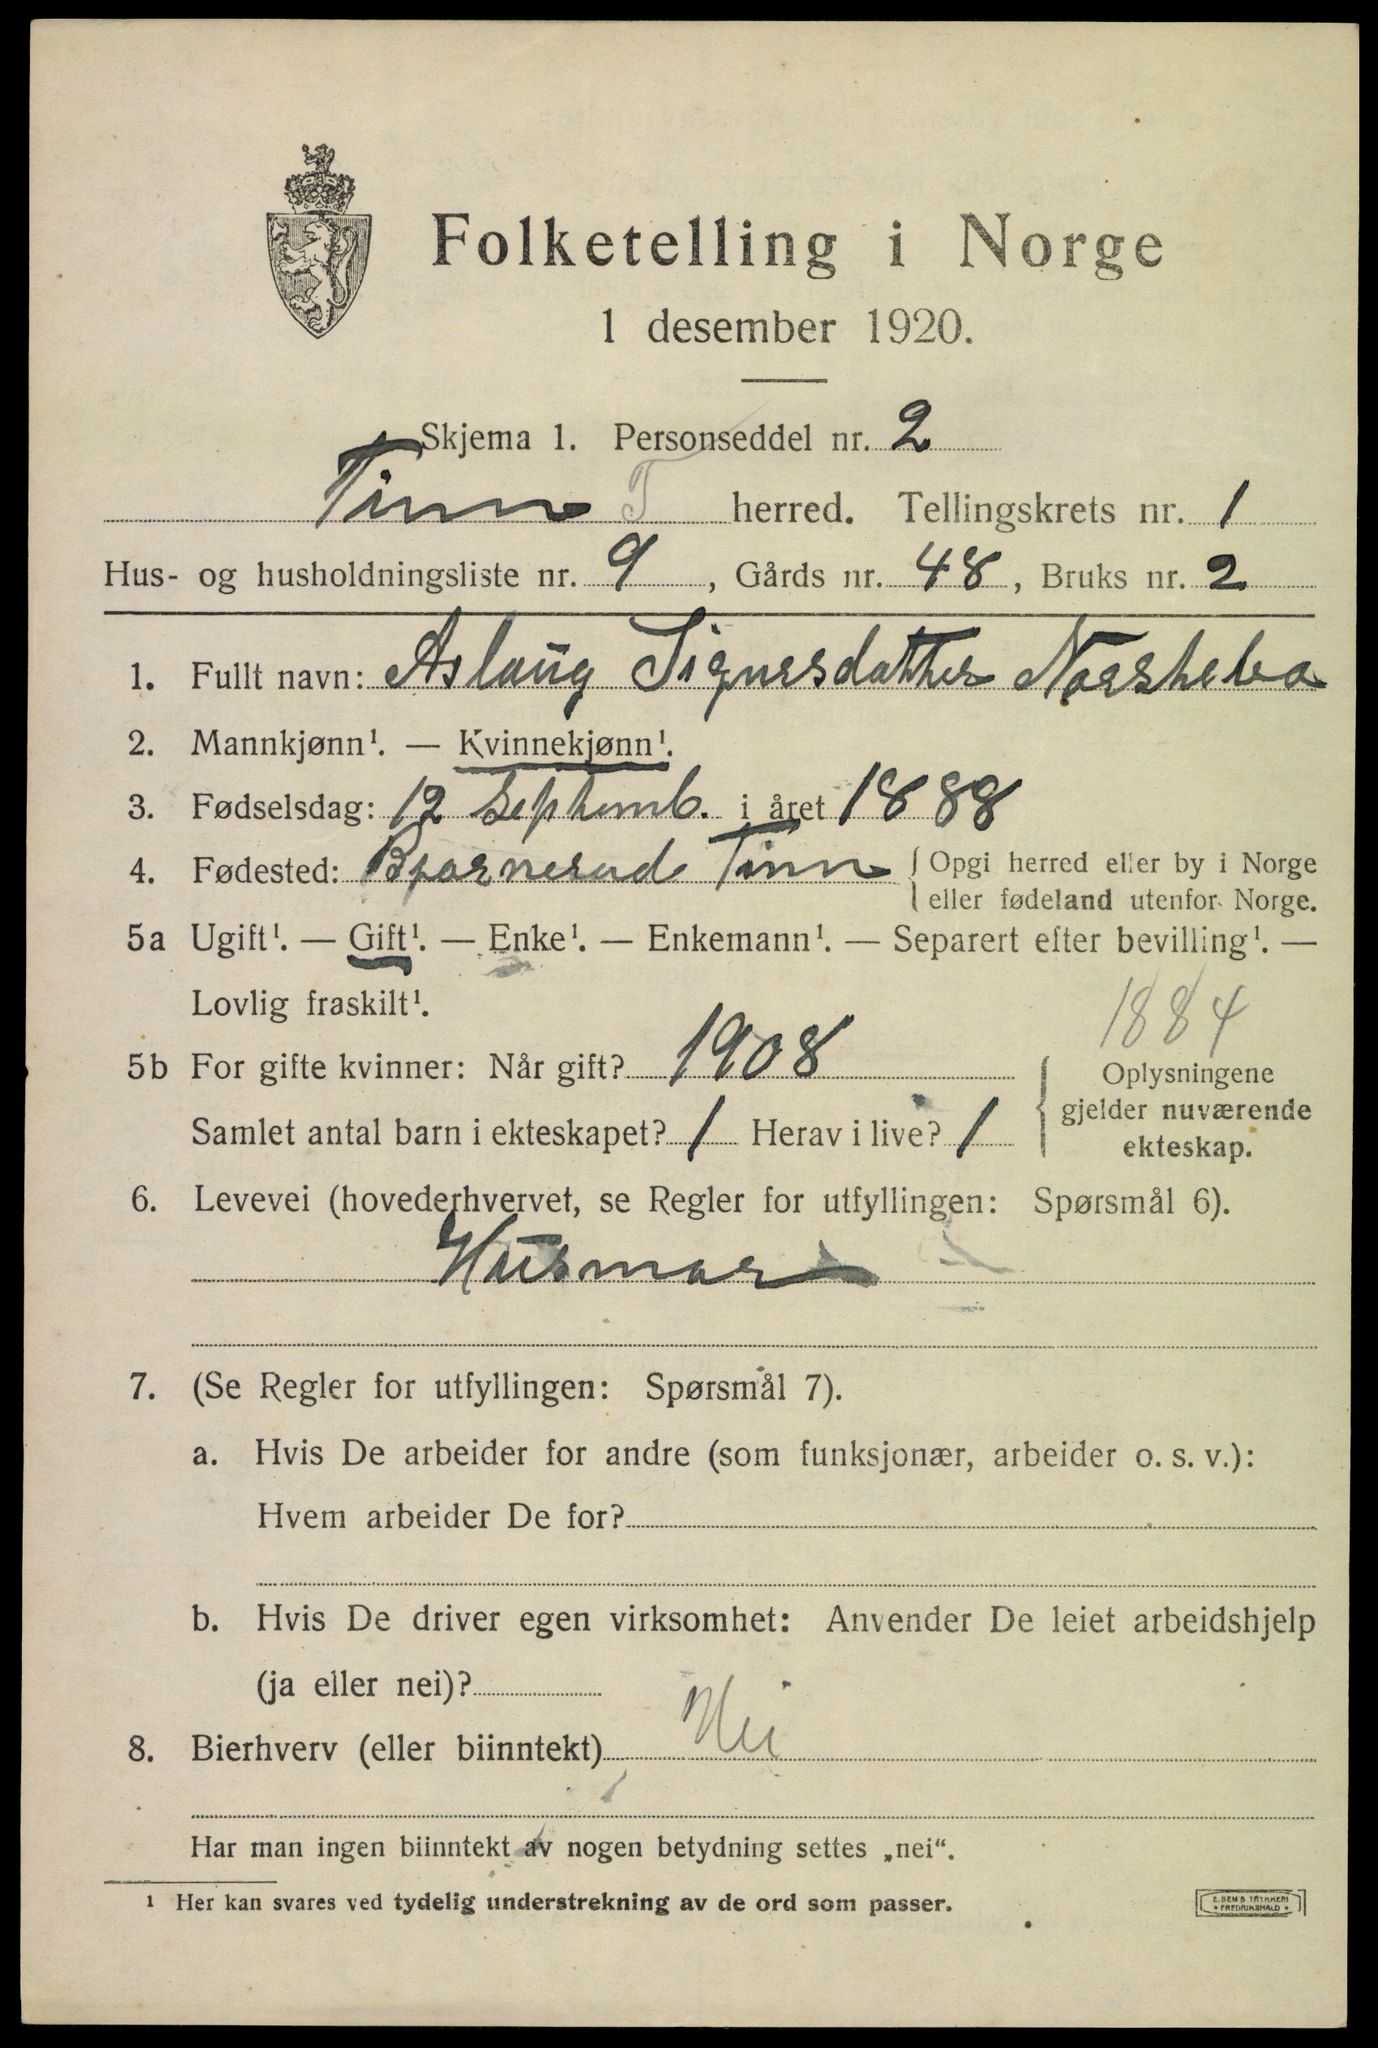 Folketelling i Norge
1 desember 1920.
Skjema 1. Personseddel nr. 2
Tinn T herred. Tellingskrets nr. 1
Hus- og husholdningsliste nr. 9, Gårds nr. 48, Bruks nr. 2
1. Fullt navn: Aslaug Sigursdatter
2. Mannkjønn¹. — Kvinnekjønn¹.
3. Fødselsdag: 12 Septemb. i året 1888
4. Fødested: Tinn { Opgi herred eller by i Norge
eller fødeland utenfor Norge.
5a Ugift¹. — Gift¹. — Enke¹. — Enkemann¹. — Separert efter bevilling¹. —
Lovlig fraskilt¹.
1884
5b For gifte kvinner: Når gift? 1908
Samlet antal barn i ekteskapet? 1 Herav i live? 1
{ Oplysningene
gjelder nuværende
ekteskap.
6. Levevei (hovederhvervet, se Regler for utfyllingen: Spørsmål 6).
Husmor
7. (Se Regler for utfyllingen: Spørsmål 7).
a. Hvis De arbeider for andre (som funksjonær, arbeider o. s. v.):
Hvem arbeider De for?
b. Hvis De driver egen virksomhet: Anvender De leiet arbeidshjelp
(ja eller nei)?
8. Bierhverv (eller biinntekt) Nei
Har man ingen biinntekt av nogen betydning settes „nei“.
¹ Her kan svares ved tydelig understrekning av de ord som passer.
E. SEM'S TRYKKERI
FREDRIKSHALD